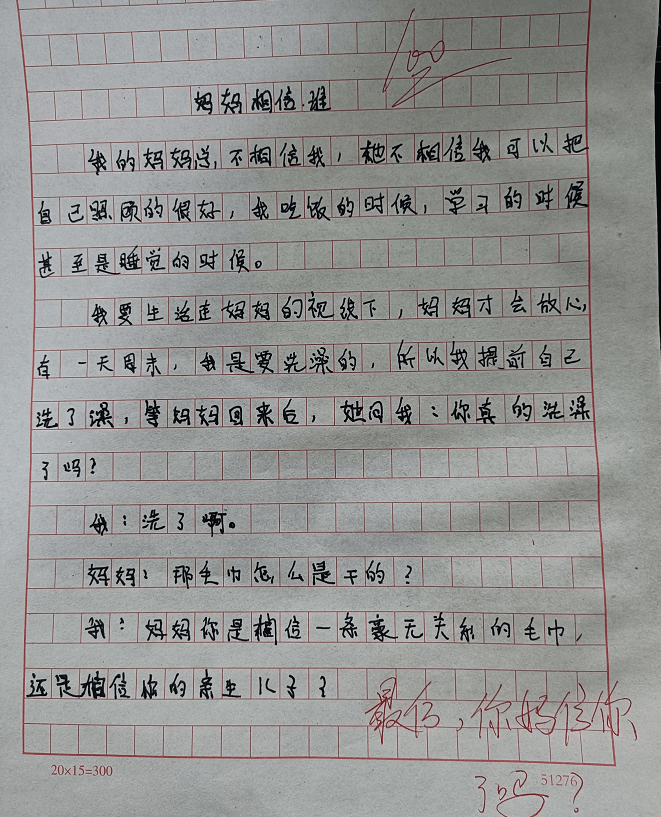 100
妈妈相信谁
我的妈妈总不相信我，她不相信我可以把
自己照顾的很好，我吃饭的时候，学习的时候
甚至是睡觉的时候。
我要生活在妈妈的视线下，妈妈才会放心，
有一天周末，我是要洗澡的，所以我提前自己
洗了澡，等妈妈回来后，她问我：你真的洗澡
了吗？
我：洗了啊。
妈妈：那毛巾怎么是干的？
我：妈妈你是相信一条豪无关系的毛巾，
还是相信你的亲生儿子？
最后，你妈信你
了吗？
20×15=300
51276